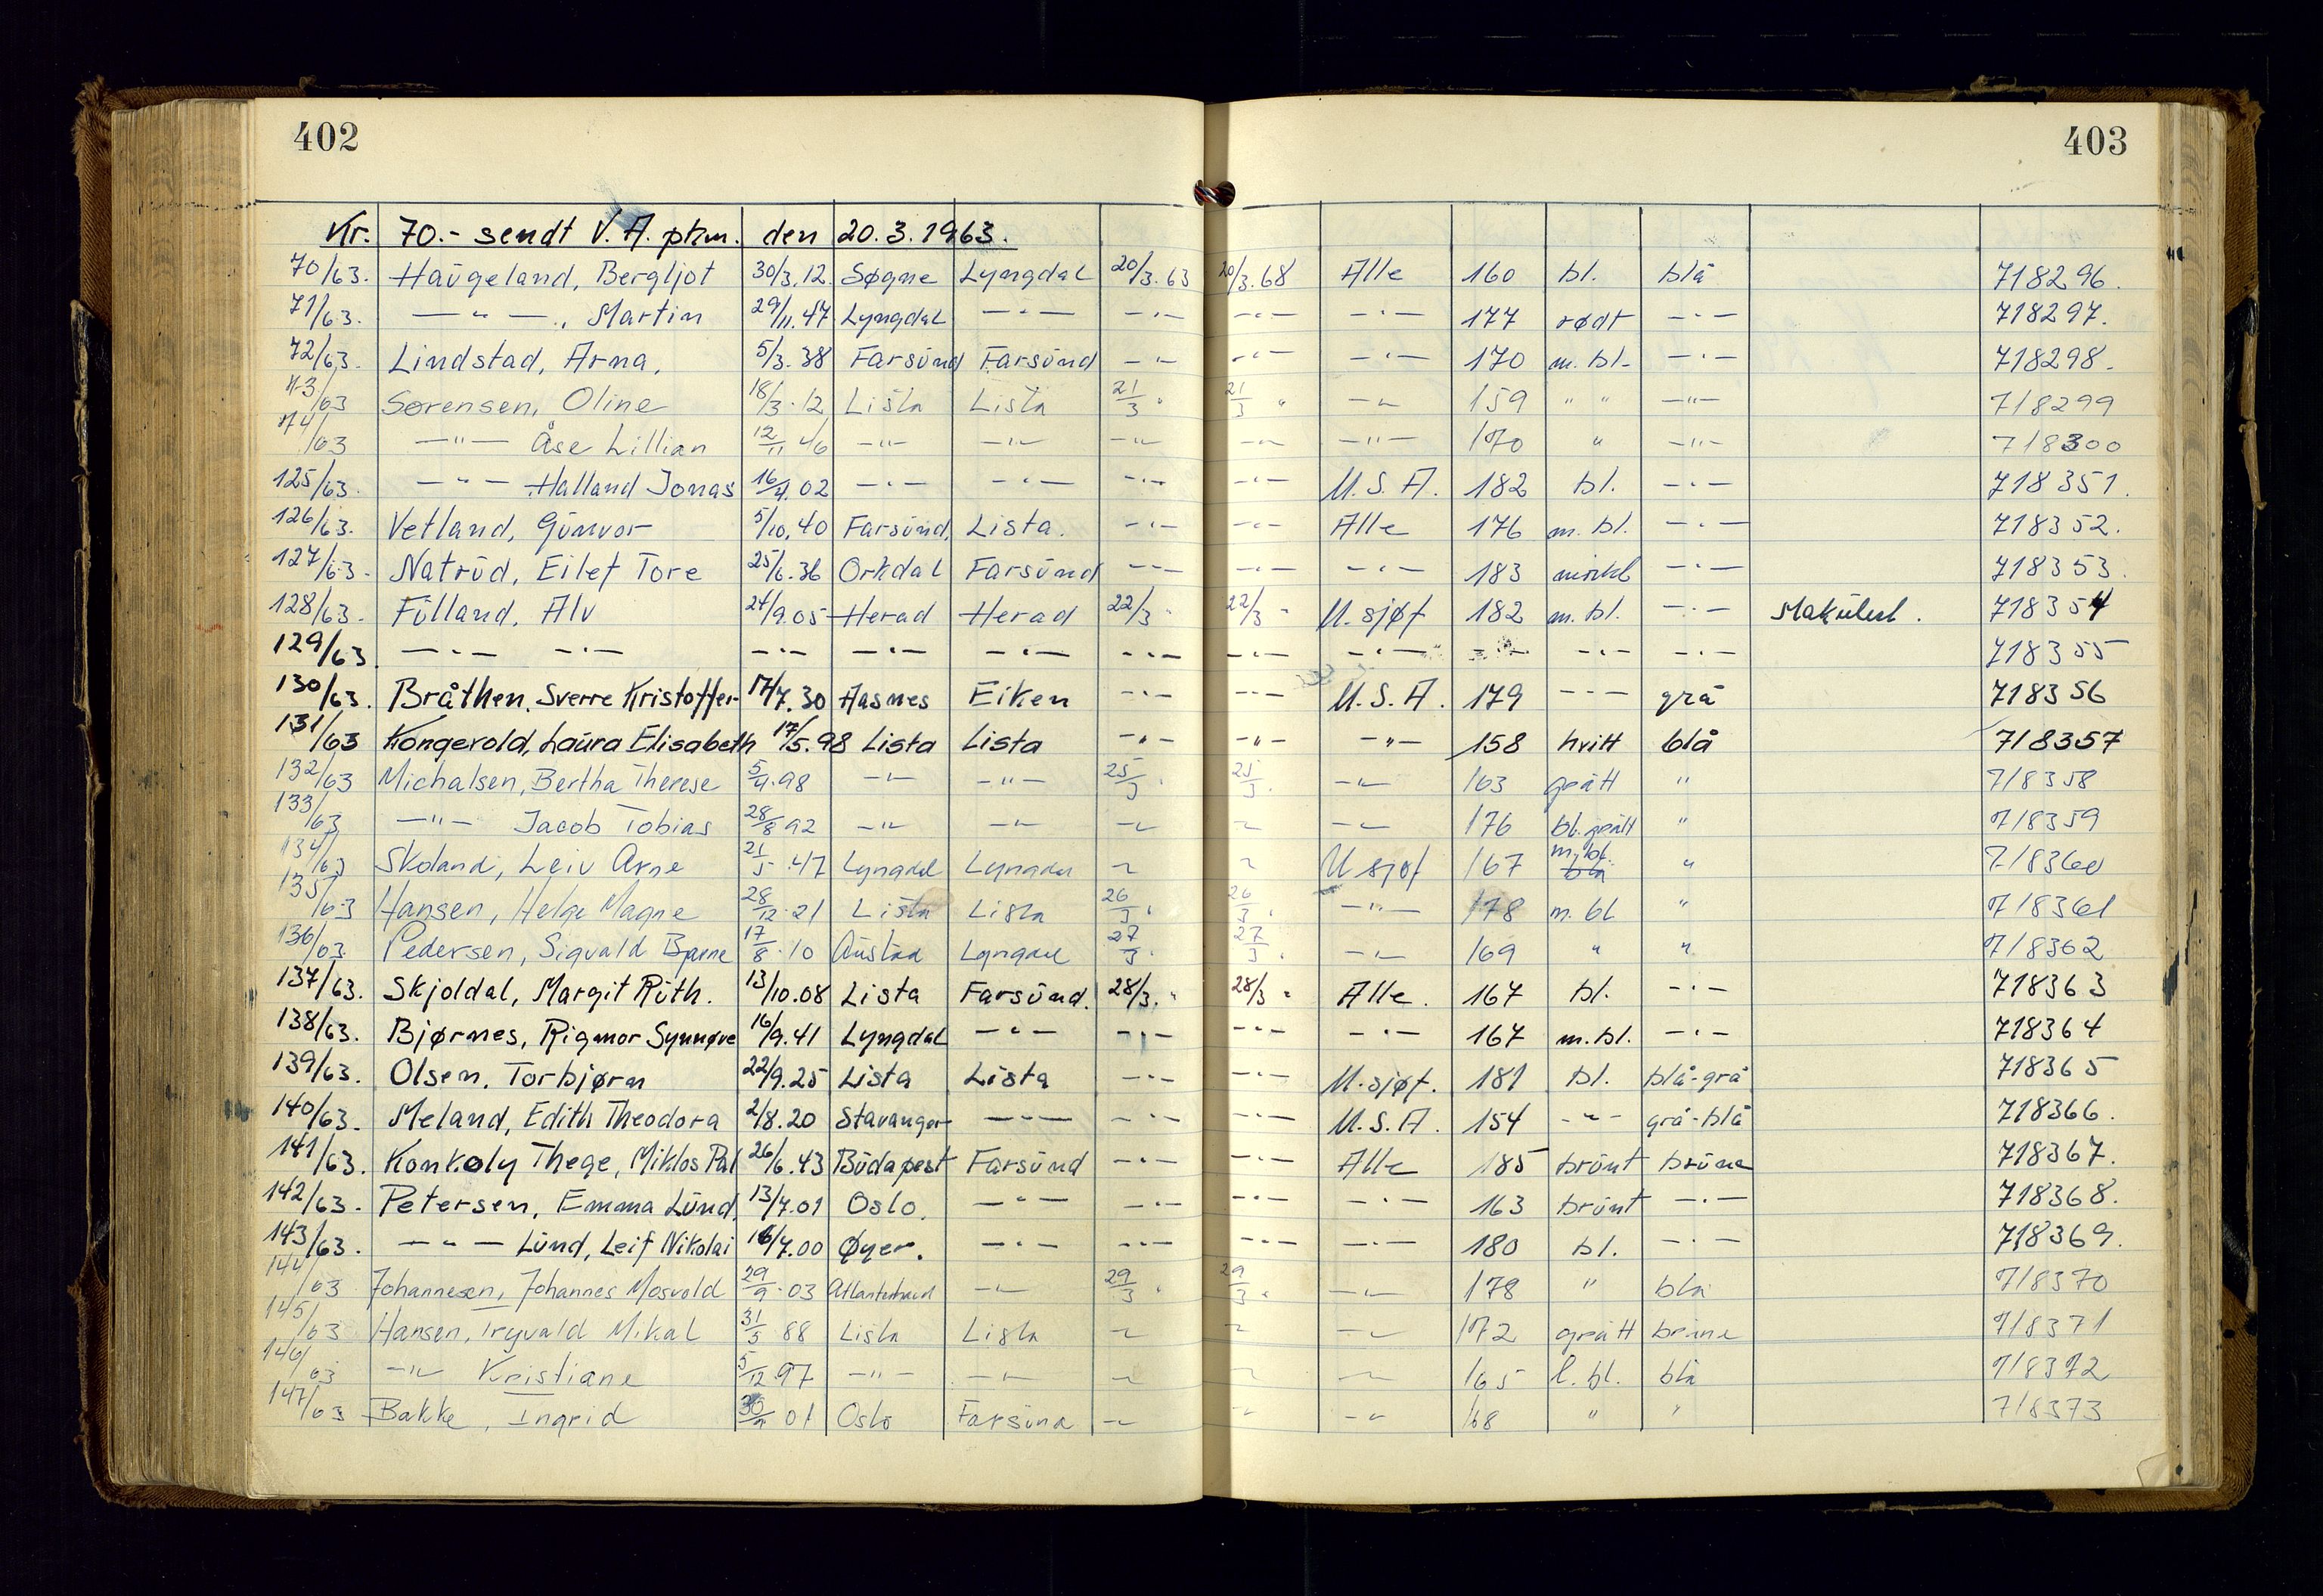 402
403
Kr. 70.- sendt V. A. pkm. den 20.3.1963.
70/63. Haŭgeland, Bergljot 30/3.12. Søgne Lyngdal 20/3.63 20/3.68 Alle 160 bl. blå 718296.
71/63. — " — ., Martin 29/11.47 Lyngdal — " — — " — — " — — " — 177 rødt — " — 718297.
72/63. Lindstad, Arna. 5/3.38 Farsŭnd Farsŭnd — " — — " — — " — 170 m. bl. — " — 718298.
73/63 Sørensen, Oline 18/3.12 Lista Lista 21/3 " 21/3 " — " — 159 " " — " — 718299
74/63 — " — Åse Lillian 12/11 46 — " — — " — — " — — " — — " — 170 " — " — 718300
125/63. — " — Halland Jonas 16/4.02 — " — — " — — " — — " — U.S.A. 182 bl. — " — 718351.
126/63. Vetland, Gŭnvor 5/10.40 Farsŭnd, Lista. — " — — " — Alle 176 m. bl. — " — 718352.
127/63. Natrŭd, Eilef Tore 25/6.36 Orkdal Farsŭnd — " — — " — — " — 183 mørkbl — " — 718353.
128/63. Fŭlland, Alv 24/9.05 Herad Herad 22/3 " 22/3 " U. sjøf 182 m. bl. — " — Makŭlert. 718354
129/63 — " — — " — — " — — " — — " — — " — — " — — " — — " — — " — — " — 718355
130/63. Bråthen, Sverre Kristoffer 17/7.30 Åsnes Eiken — " — — " — U.S.A. 179 — " — grå 718356
131/63 Kongevold, Laŭra Elisabeth 17/5.98 Lista Lista — " — — " — — " — 158 hvitt blå 718357
132/63 Michalsen, Bertha Therese 5/4.98 — " — — " — 25/3 " 25/3 " — " — 163 grått " 718358
133/63 — " — Jacob Tobias 28/8 92 — " — — " — — " — — " — — " — 176 bl. grått " 718359
134/63 Skoland, Leiv Arne 21/5.47 Lyngdal Lyngdal — " — — " — U sjøf 167 m. bl. " 718360
135/63 Hansen, Helge Magne 28/12.21 Lista Lista 26/3 " 26/3 " — " — 178 m. bl " 718361
136/63. Pedersen, Sigvald Bjarne 17/8.10 Aŭstad Lyngdal 27/3 " 27/3 " — " — 169 " " 718362
137/63. Skjoldal, Margit Rŭth. 13/10.08 Lista Farsŭnd. 28/3. " 28/3 " Alle. 167 bl. — " — 718363
138/63. Bjørnes, Rigmor Synnøve 16/9.41 Lyngdal — " — — " — — " — — " — 167 m. bl. — " — 718364
139/63. Olsen, Torbjørn 22/9.25 Lista Lista — " — — " — U. sjøf. 181 bl. blå-grå 718365
140/63. Meland, Edith Theodora 2/8.20 Stavanger — " — — " — — " — U.S.A. 154 — " — grå-blå 718366.
141/63. Konkoly Thege, Miklos Pal 26/6.43 Bŭdapest Farsŭnd — " — — " — Alle 185 brŭnt brŭne 718367.
142/63. Petersen, Emma Lŭnd, 13/7.01 Oslo. — " — — " — — " — — " — 163 brŭnt — " — 718368.
143/63. — " — Lŭnd, Leif Nikolai 16/7.00 Øyer. — " — — " — — " — — " — 180 bl. — " — 718369.
144/63 Johannesen, Johannes Mosvold 29/9.03 Atlanterhavet — " — 29/3 " 29/3 " — " — 178 " blå 718370
145/63 Hansen, Trygvald Mikal 31/5 88 Lista Lista — " — — " — — " — 172 grått brŭne 718371
146/63 — " — Kristiane 5/12 97 — " — — " — — " — — " — — " — 165 l. bl. blå 718372
147/63 Bakke, Ingrid 01 Oslo Farsŭnd — " — — " — — " — 168 " " 718373